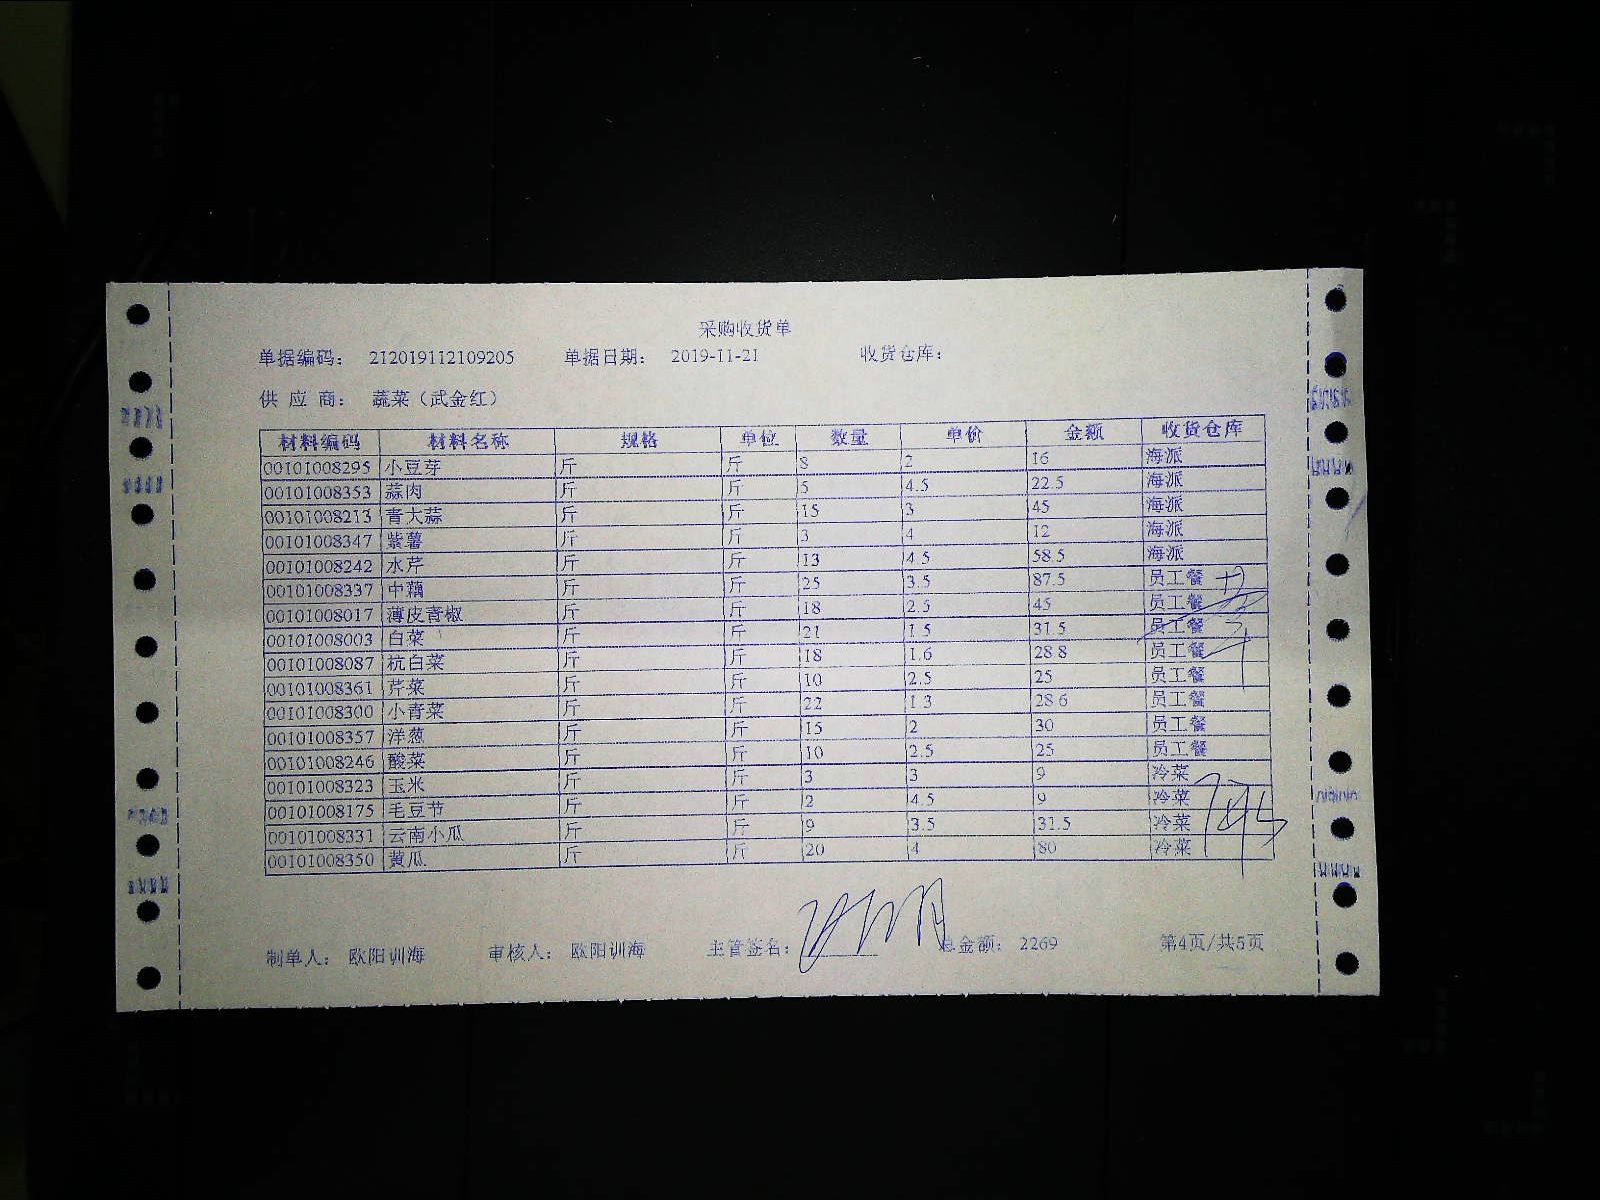 采购收货单
单据编码： 212019112109205 单据日期： 2019-11-21 收货仓库：
供 应 商： 蔬菜（武金红）
材料编码 材料名称 规格 单位 数量 单价 金额 收货仓库
00101008295 小豆芽 斤 斤 8 2 16 海派
00101008353 蒜肉 斤 斤 5 4.5 22.5 海派
00101008213 青大蒜 斤 斤 15 3 45 海派
00101008347 紫薯 斤 斤 3 4 12 海派
00101008242 水芹 斤 斤 13 4.5 58.5 海派
00101008337 中藕 斤 斤 25 3.5 87.5 员工餐
00101008017 薄皮青椒 斤 斤 18 2.5 45 员工餐
00101008003 白菜 斤 斤 21 1.5 31.5 员工餐
00101008087 杭白菜 斤 斤 18 1.6 28.8 员工餐
00101008361 芹菜 斤 斤 10 2.5 25 员工餐
00101008300 小青菜 斤 斤 22 1.3 28.6 员工餐
00101008357 洋葱 斤 斤 15 2 30 员工餐
00101008246 酸菜 斤 斤 10 2.5 25 员工餐
00101008323 玉米 斤 斤 3 3 9 冷菜
00101008175 毛豆节 斤 斤 2 4.5 9 冷菜
00101008331 云南小瓜 斤 斤 9 3.5 31.5 冷菜
00101008350 黄瓜 斤 斤 20 4 80 冷菜
制单人： 欧阳训海 审核人： 欧阳训海 主管签名： 总金额： 2269 第4页/共5页